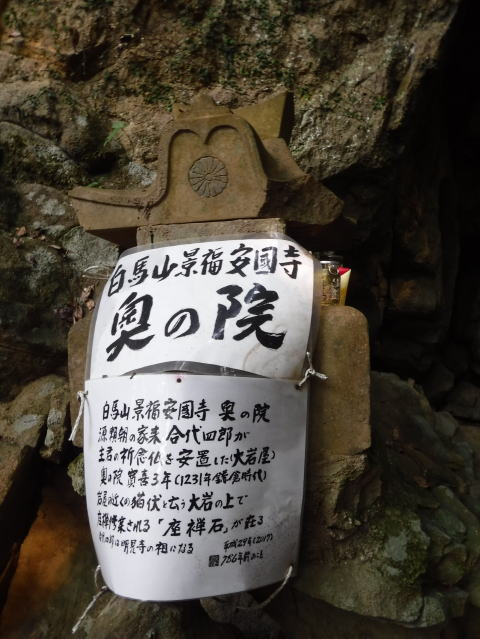 白馬山景福安國寺
奥の院
白馬山景福安國寺 奥の院
源頼朝の家来 合代四郎が
主君の祈念仏を安置した(大岩屋)
奥の院 寛喜3年(1231年鎌倉時代)
岩屋の近くの猫伏と云う大岩の上で
座禅修業される「座禅石」が在る
は明見寺の祖になる
平成29年(2017)
786年前のこと